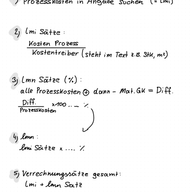 1) Prozesskosten in Angabe suchen (= lmi)
2) lmi Sätze:
Kosten Prozess
Kostentreiber (steht im Text z.B. Stk, m²)
3) lmn Sätze (%):
alle Prozesskosten ⊕ dann - Mat. GK = Diff.
Diff.
Prozesskosten × 100 ... %
4) lmn:
lmi Sätze × .... %
5) Verrechnungssätze gesamt:
lmi + lmn Satz